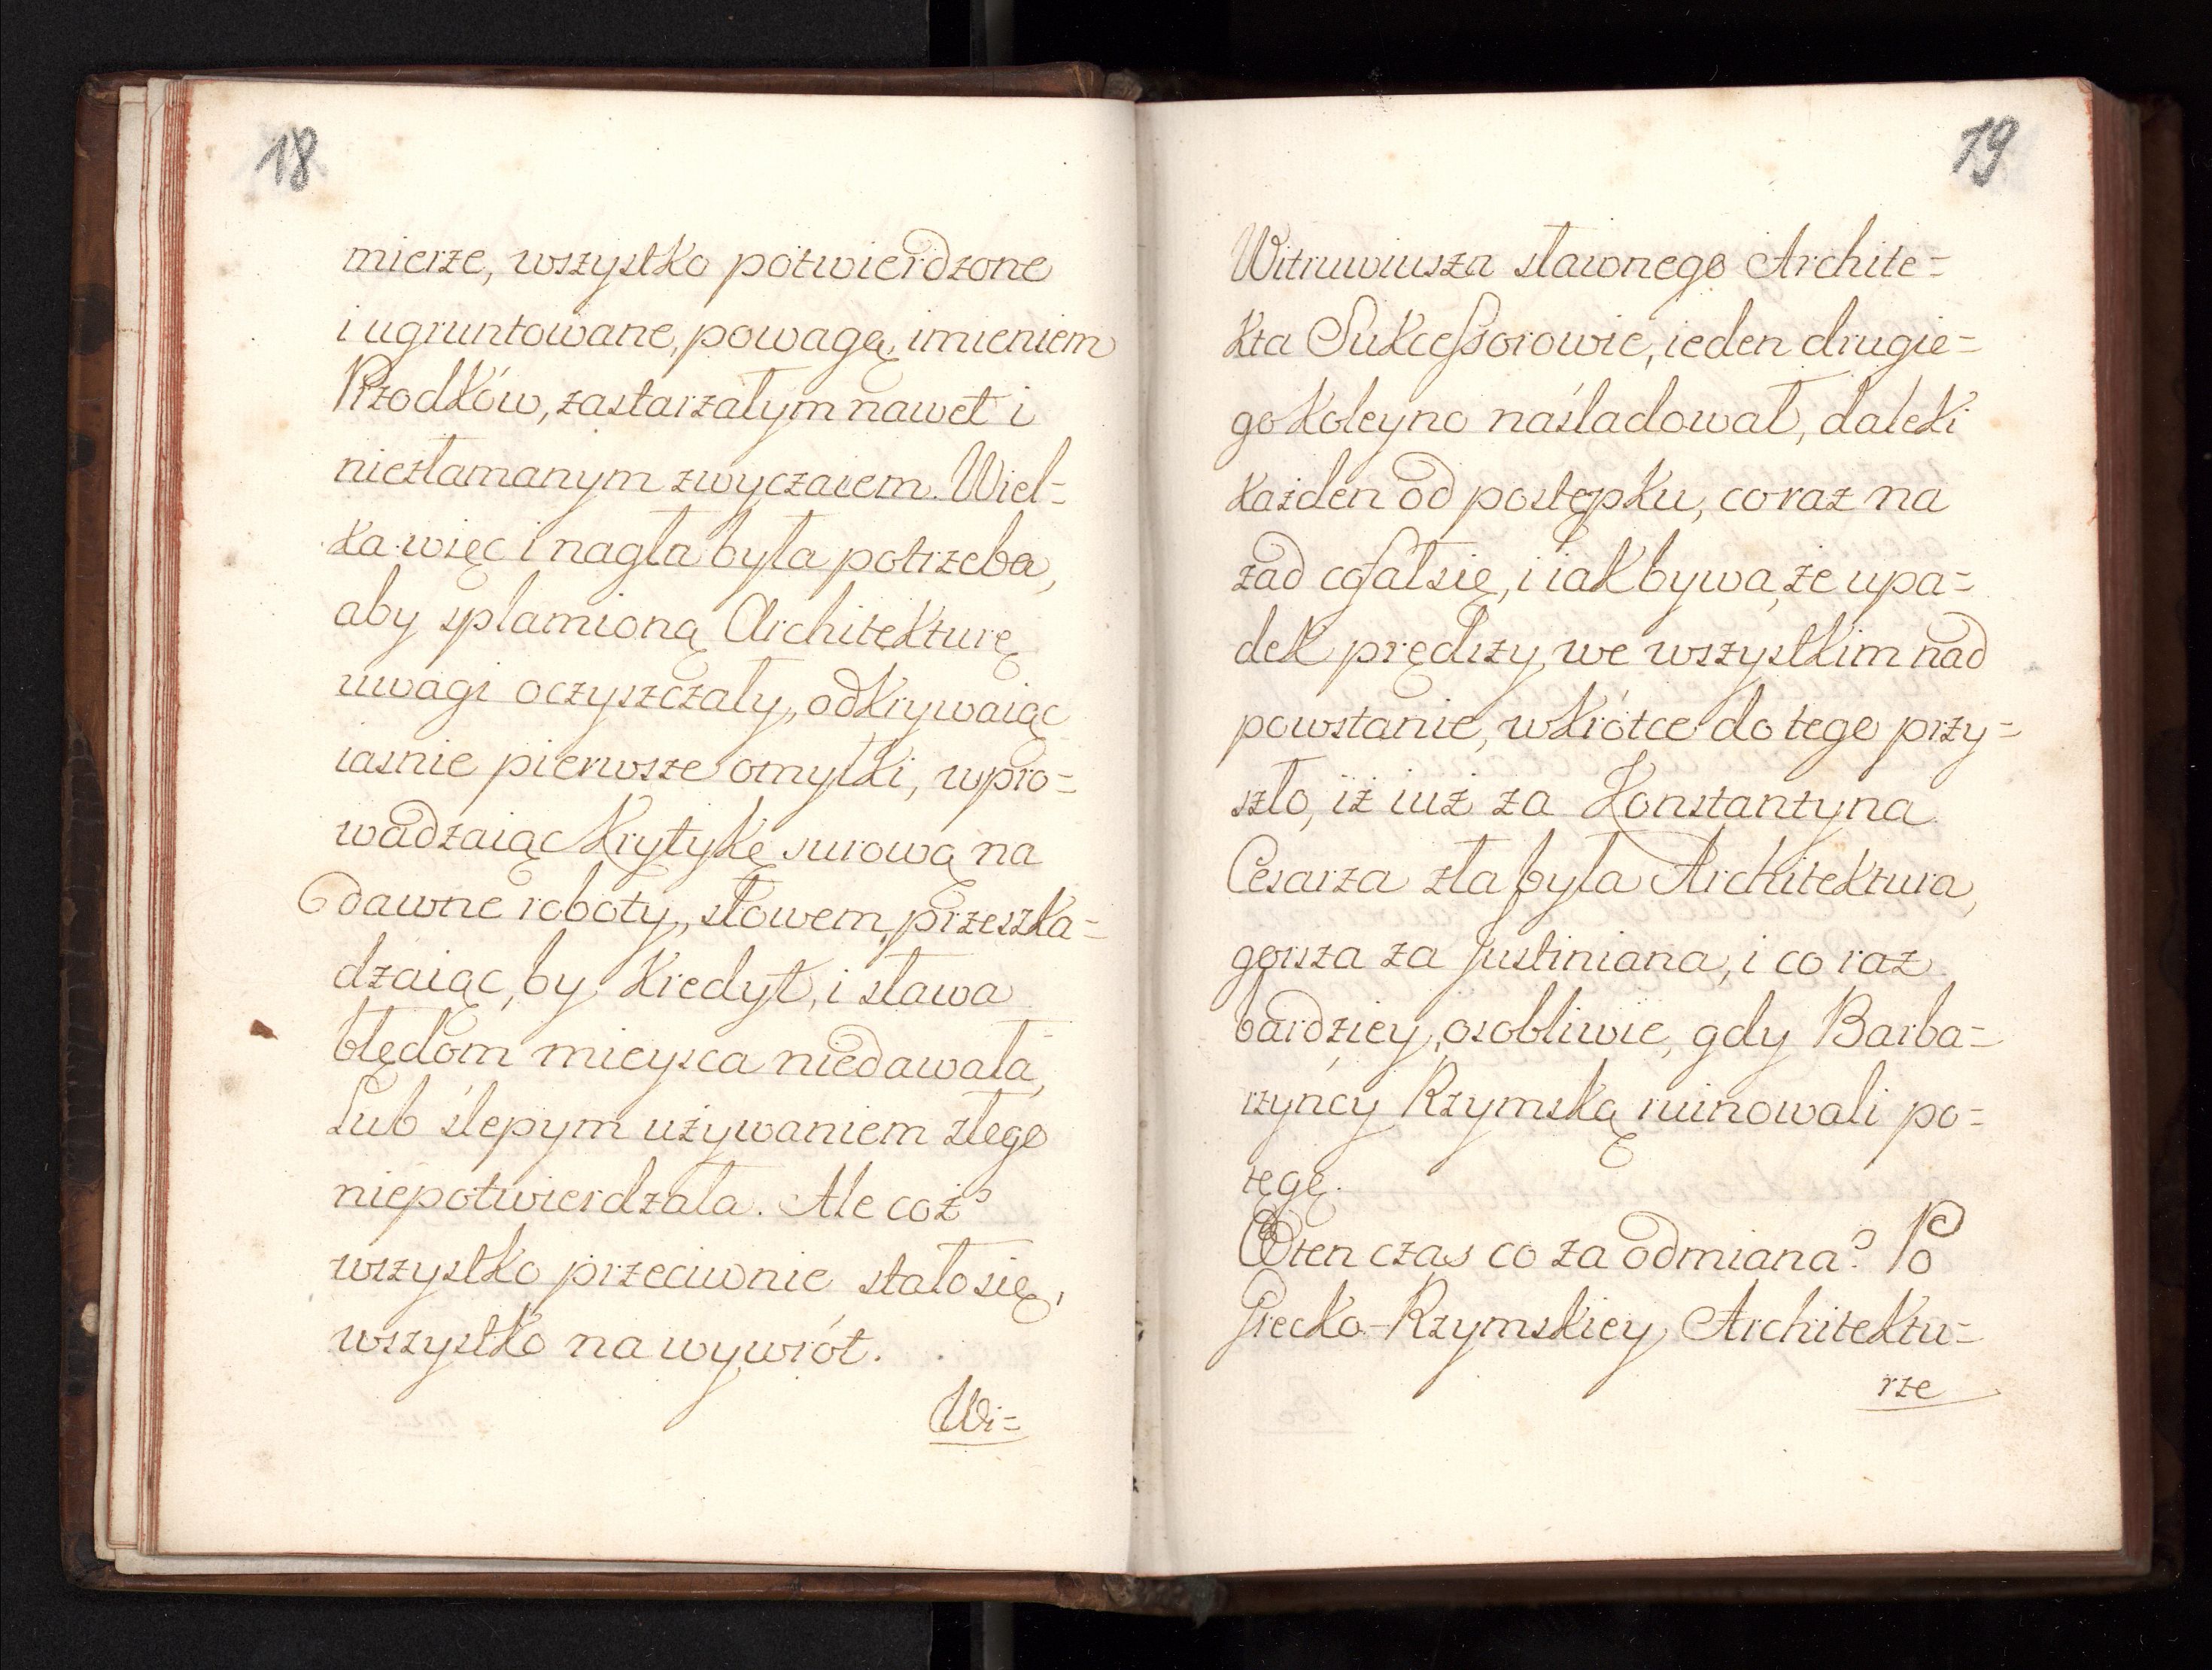 18
mierze, wszystko potwierdzone
i ugruntowane, powagą, imieniem
Przodków, zastarzałym nawet i
niezłamanym zwyczaiem. Wiel=
ka więc i nagła była potrzeba,
aby splamioną Architekturę
uwagi oczyszczały, odkrywaiąc
iasnie pierwsze omyłki, wpro=
wadzaiąc Krytykę surową na
dawne roboty, słowem przeszka=
dzaiąc, by Kredyt, i sława
błędom mieysca niedawała,
Lub ślepym używaniem złego
niepotwierdzała. Ale coż?
wszystko przeciwnie stało się,
wszystko na wywrót.
Wi=
19
Witruwiusza sławnego Archite=
kta Sukcessorowie, ieden drugie=
go koleyno naśladował, daleki
każden od postępku, co raz na
zad cofał się, i iak bywa, że upa=
dek prędszy we wszystkim nad
powstanie, wkrótce do tego przy=
szło, iż iuż za Konstantyna
Cesarza zła była Architektura,
gorsza za Justiniana, i co raz
bardziey, osobliwie, gdy Barba=
rzyńcy Rzymską ruinowali po=
tęgę.
Wten czas co za odmiana? Po
Grecko-Rzymskiey Architektu=
rze